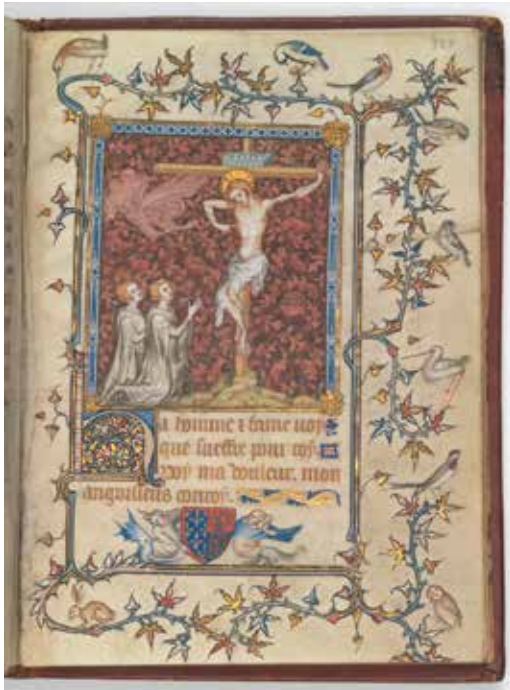 Ha homme & fame voy
que sueffre pour toy.
Voy ma douleur. mon
angoisseus conroy.